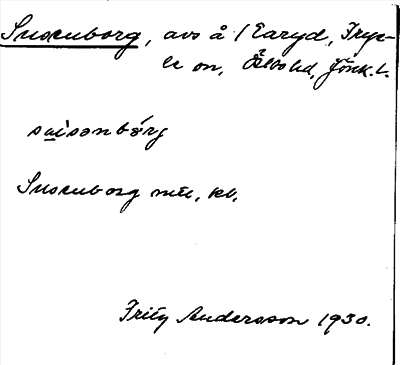 Susenborg, avs å 1 Earyd, Frye-
le sn, Östbo hd, Jönk. l.
susenbórg
Susenborg mtl, kb.
Fritz Andersson 1930.